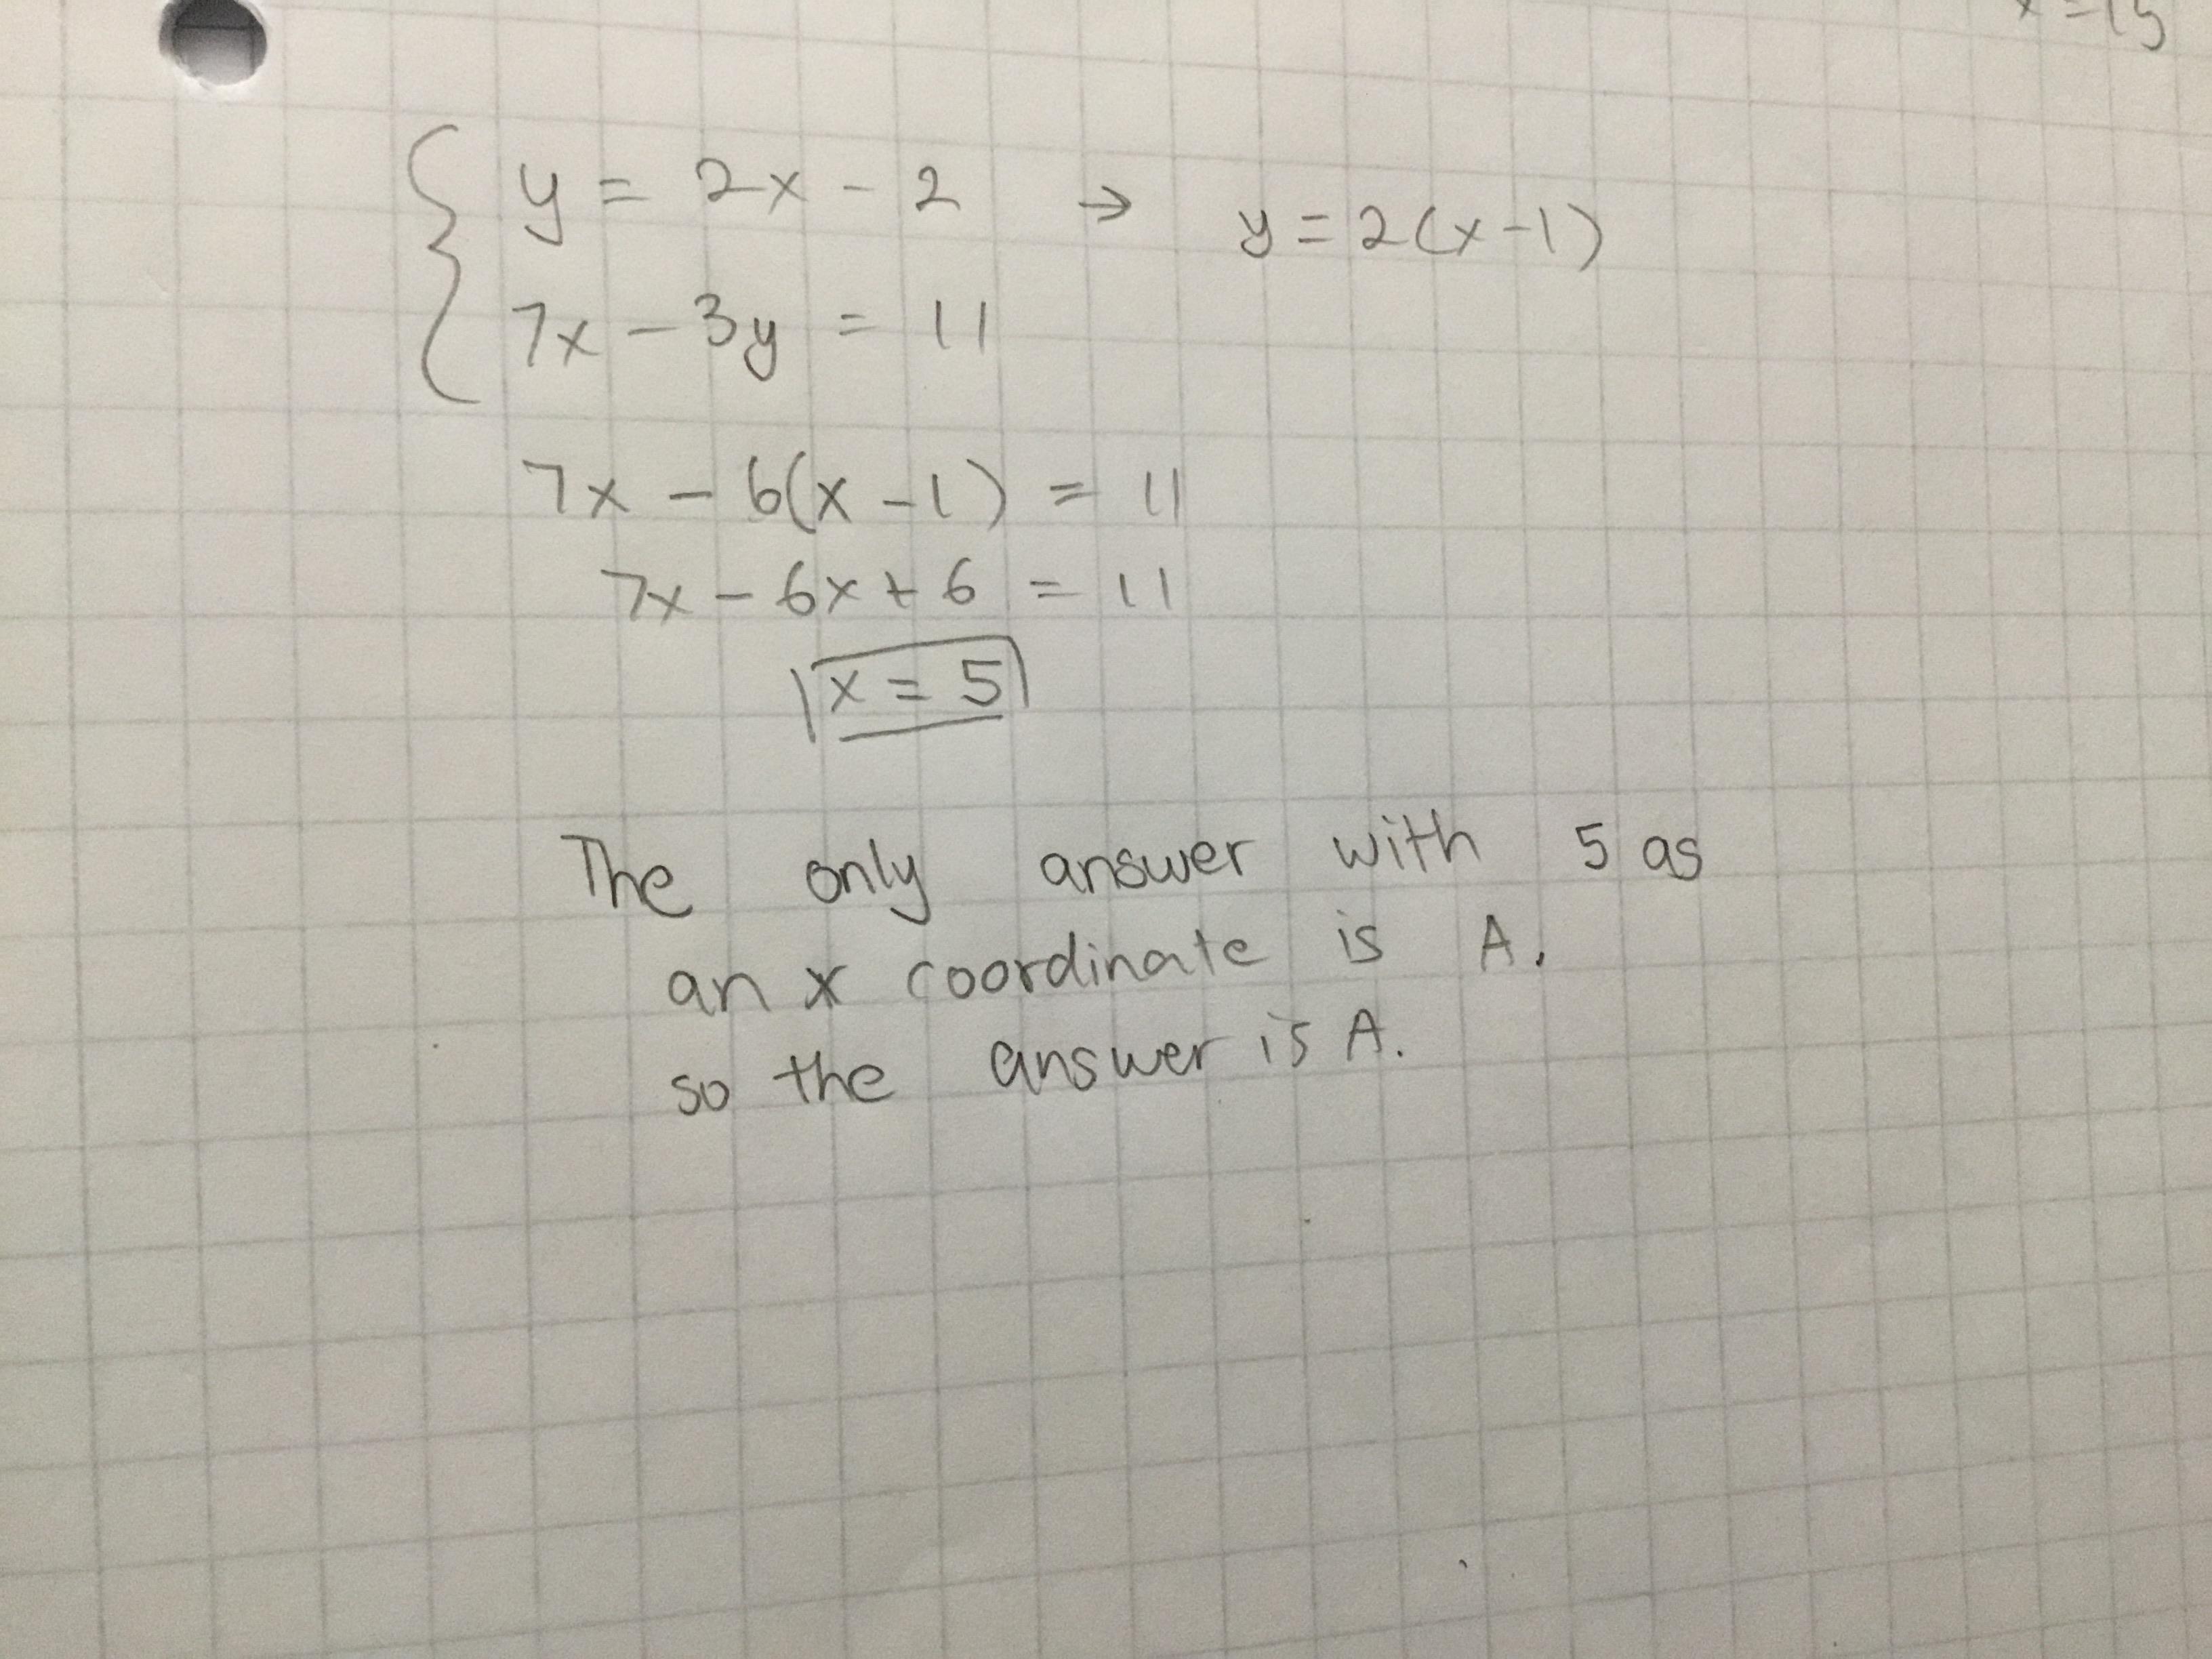 x = 15
y = 2x - 2 → y = 2(x-1)
7x - 3y = 11
7x - 6(x - 1) = 11
7x - 6x + 6 = 11
x = 5
The only answer with 5 as
an x coordinate is A.
so the answer is A.